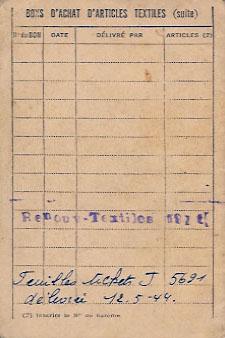 BONS D'ACHAT D'ARTICLES TEXTILES (suite)
N° du BON DATE DÉLIVRÉ PAR ARTICLES (7)
Renouv-Textiles
Feuilles tickets J 5691
délivrée 12.5-44.
(7) Inscrire le N° du barème